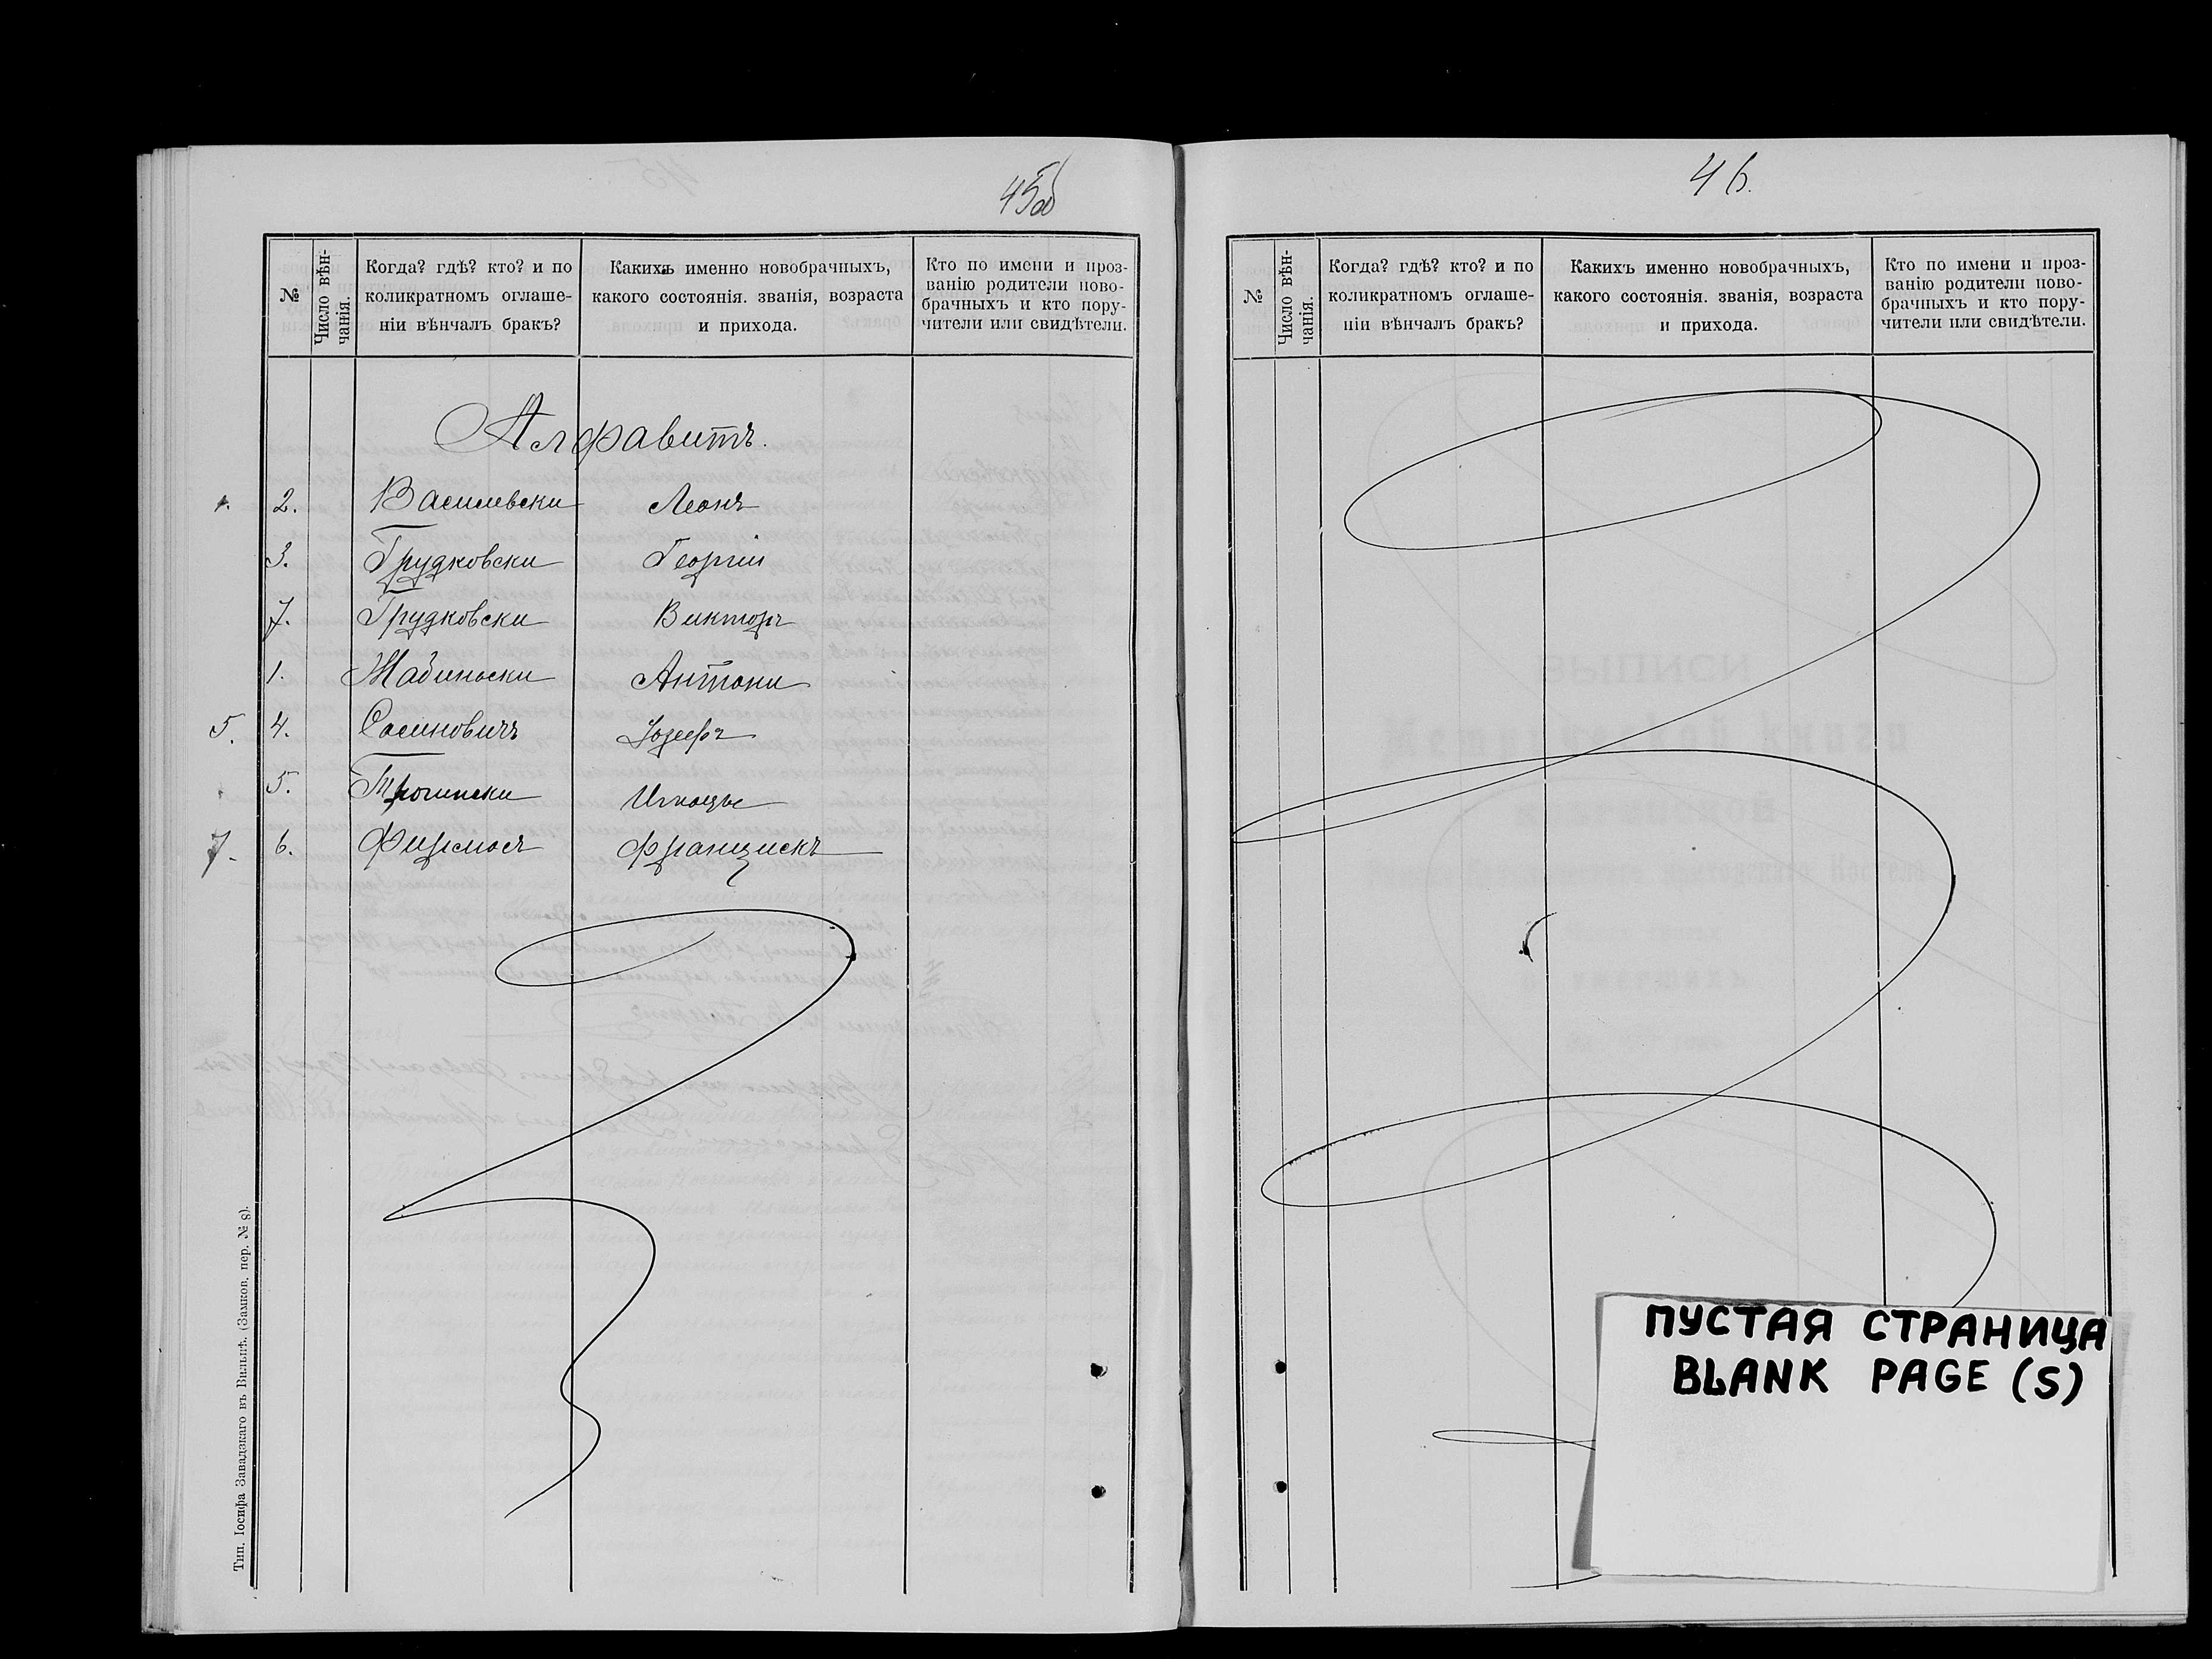 45об
№
Число вѣн-
чанія.
Когда? гдѣ? кто? и по
коликратномъ оглаше-
ніи вѣнчалъ бракъ?
Какихъ именно новобрачныхъ,
какого состоянія. званія, возраста
и прихода.
Кто по имени и проз-
ванію родители ново-
брачныхъ и кто пору-
чители или свидѣтели.
Алфавитъ.
1. 2. Василевски Леонъ
3. Грудковски Георгій
7. Грудковски Викторъ
1. Жабиноски Антони
5. 4. Сасиновичъ Юзефъ
5. Трочински Игнацы
7. 6. Францискъ
Тип. Іосифа Завадзкаго въ Вильнѣ. (Замков. пер. № 8).
46.
№
Число вѣн-
чанія.
Когда? гдѣ? кто? и по
коликратномъ оглаше-
ніи вѣнчалъ бракъ?
Какихъ именно новобрачныхъ,
какого состоянія. званія, возраста
и прихода.
Кто по имени и проз-
ванію родители ново-
брачныхъ и кто пору-
чители или свидѣтели.
ПУСТАЯ СТРАНИЦА
BLANK PAGE (S)